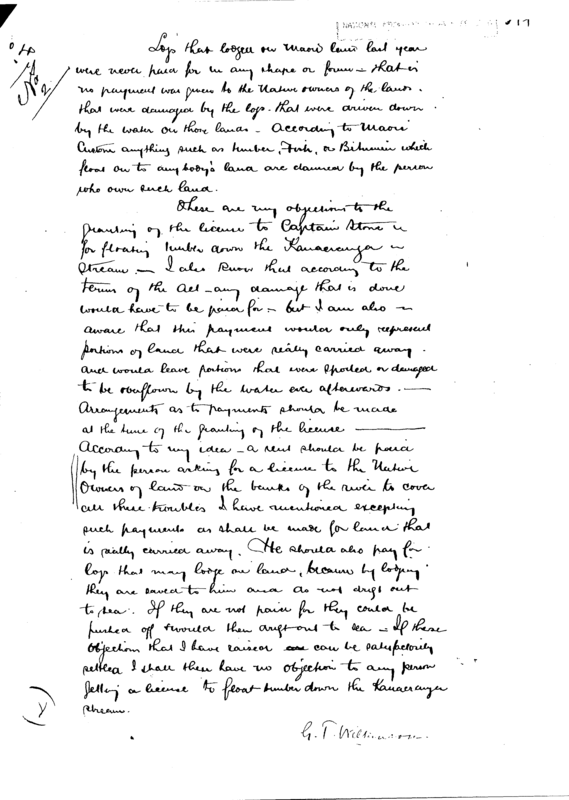 No 2.
Logs that lodged on Maori land last year
were never paid for in any shape or form - that is
no payment was given to the Native owners of the lands.
that were damaged by the logs that were driven down
by the water on those lands - According to Maori
Custom anything such as timber, Fish, or Bitumen which
float on to anybody's land are claimed by the person
who own such land.
These are my objections to the
granting of the license to Captain Stone
for floating timber down the Kauaeranga
Stream. - I also know that according to the
terms of the Act - any damage that is done
would have to be paid for - but I am also
aware that this payment would only represent
portions of land that were really carried away.
and would leave portions that were spoiled or damaged
to be overflown by the water ever afterwards. -
Arrangements as to payments should be made
at the time of the granting of the license -
According to my idea - a rent should be paid
by the person asking for a license to the Native
Owners of land on the banks of the river to cover
all these troubles I have mentioned excepting
such payments as shall be made for land that
is really carried away. He should also pay for
logs that may lodge on land, because by lodging
they are saved to him and do not drift out
to sea. If they are not paid for they could be
pushed off & would then drift out to sea - If these
objection that I have raised can be satisfactorily
settled I shall then have no objection to any person
getting a license to float timber down the Kauaeranga
stream.
G. T. Wilkinson.